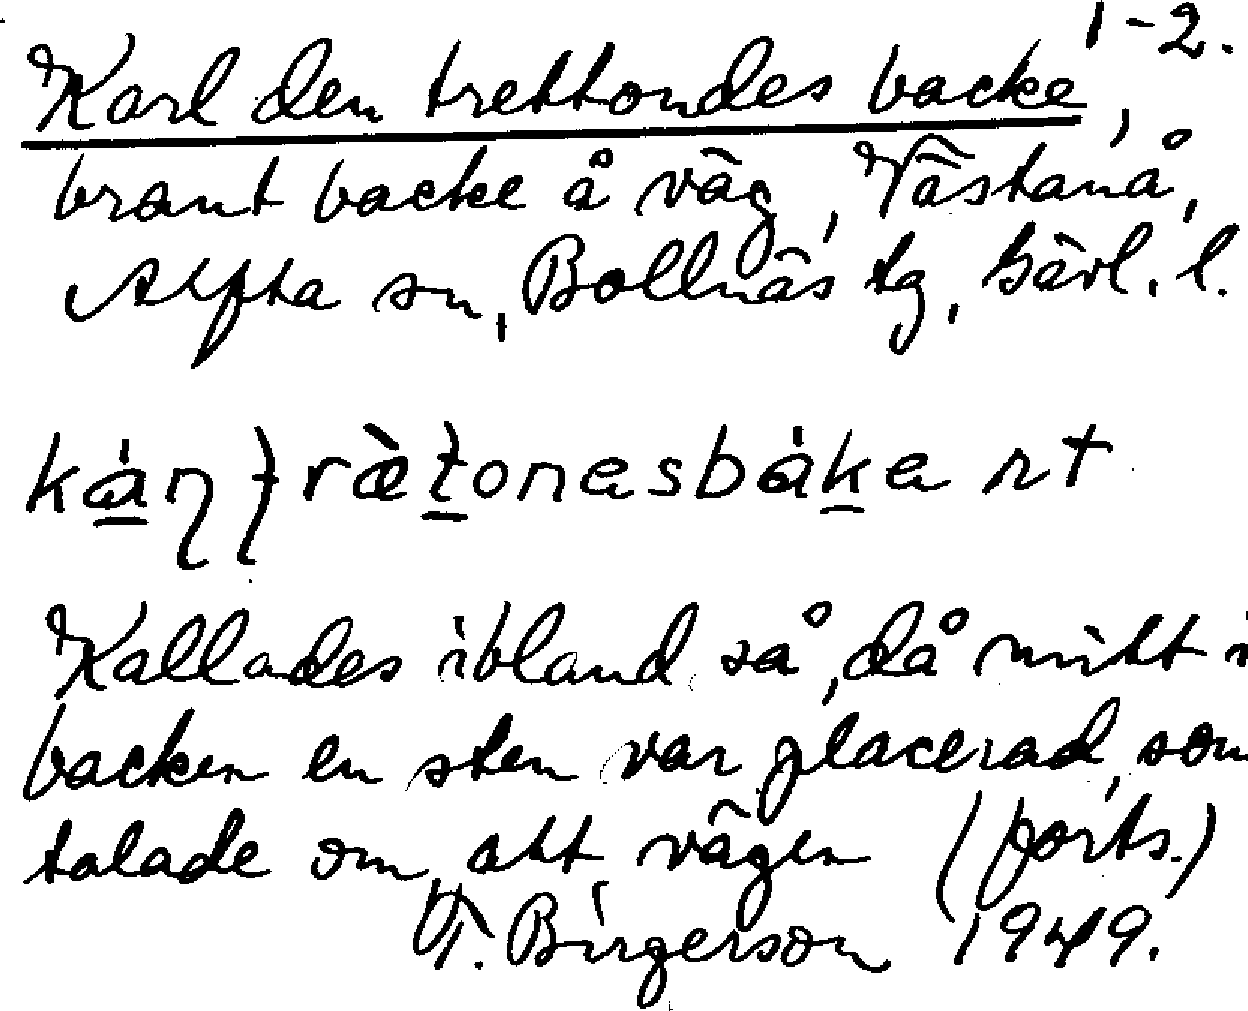 1-2.
Karl den trettondes backe,
brant backe å väg, Västanå,
Alfta sn, Bollnäs tg, Gävl. l.
Kallades ibland så, då mitt i
backen en sten var placerad, som
talade om, att vägen (forts.)
T. Birgerson 1949.